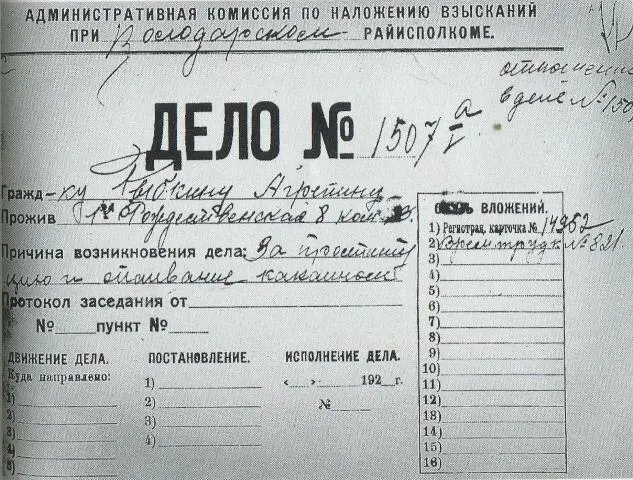 АДМИНИСТРАТИВНАЯ КОМИССИЯ ПО НАЛОЖЕНИЮ ВЗЫСКАНИЙ
ПРИ Володарском РАЙИСПОЛКОМЕ.
отношение
в деле № 150
ДЕЛО № 1507 а
Гражд-ку Агрепину
Прожив 1я Рождественская 8 ком
Причина возникновения дела: За проститу
цию и спаивание кокаином
Протокол заседания от
№ пункт №
ВЛОЖЕНИЙ.
1) Регистрац. карточка № 14952
2) Врем. трудк № 821
3)
4)
5)
6)
7)
8)
9)
10)
11)
12)
13)
14)
15)
16)
ДВИЖЕНИЕ ДЕЛА.
Куда направлено:
1)
2)
3)
4)
5)
ПОСТАНОВЛЕНИЕ.
1)
2)
3)
4)
ИСПОЛНЕНИЕ ДЕЛА.
« » 192 г.
№